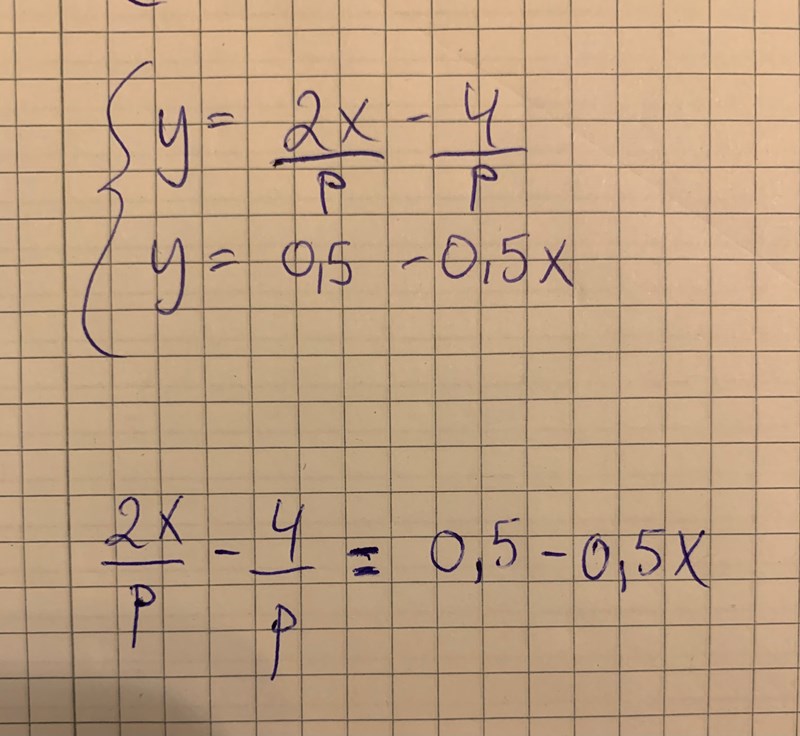 y = 2x/p - 4/p
y = 0,5 - 0,5x
2x/p - 4/p = 0,5 - 0,5x